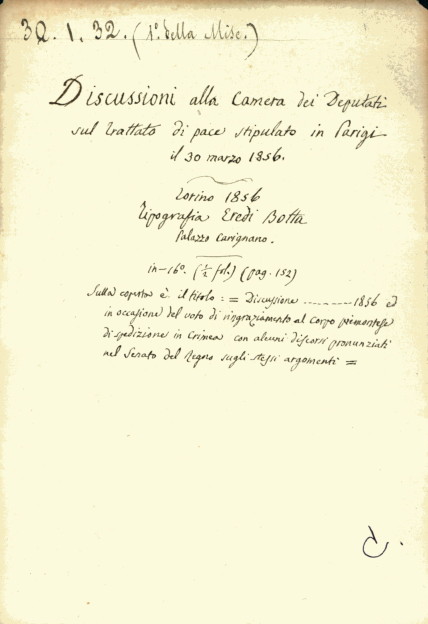 3Q. 1. 32. (1º. della Misc.)
Discussioni alla Camera dei Deputati
sul trattato di pace stipulato in Parigi
il 30 marzo 1856.
Torino 1856
Tipografia Eredi Botta
Palazzo Carignano.
in-16º. (½ fol.) (pag. 152)
Sulla coperta è il titolo: = Discussione ---------- 1856 ed
in occasione del voto di ringraziamento al Corpo piemontese
di spedizione in Crimea con alcuni discorsi pronunziati
nel Senato del Regno sugli stessi argomenti =